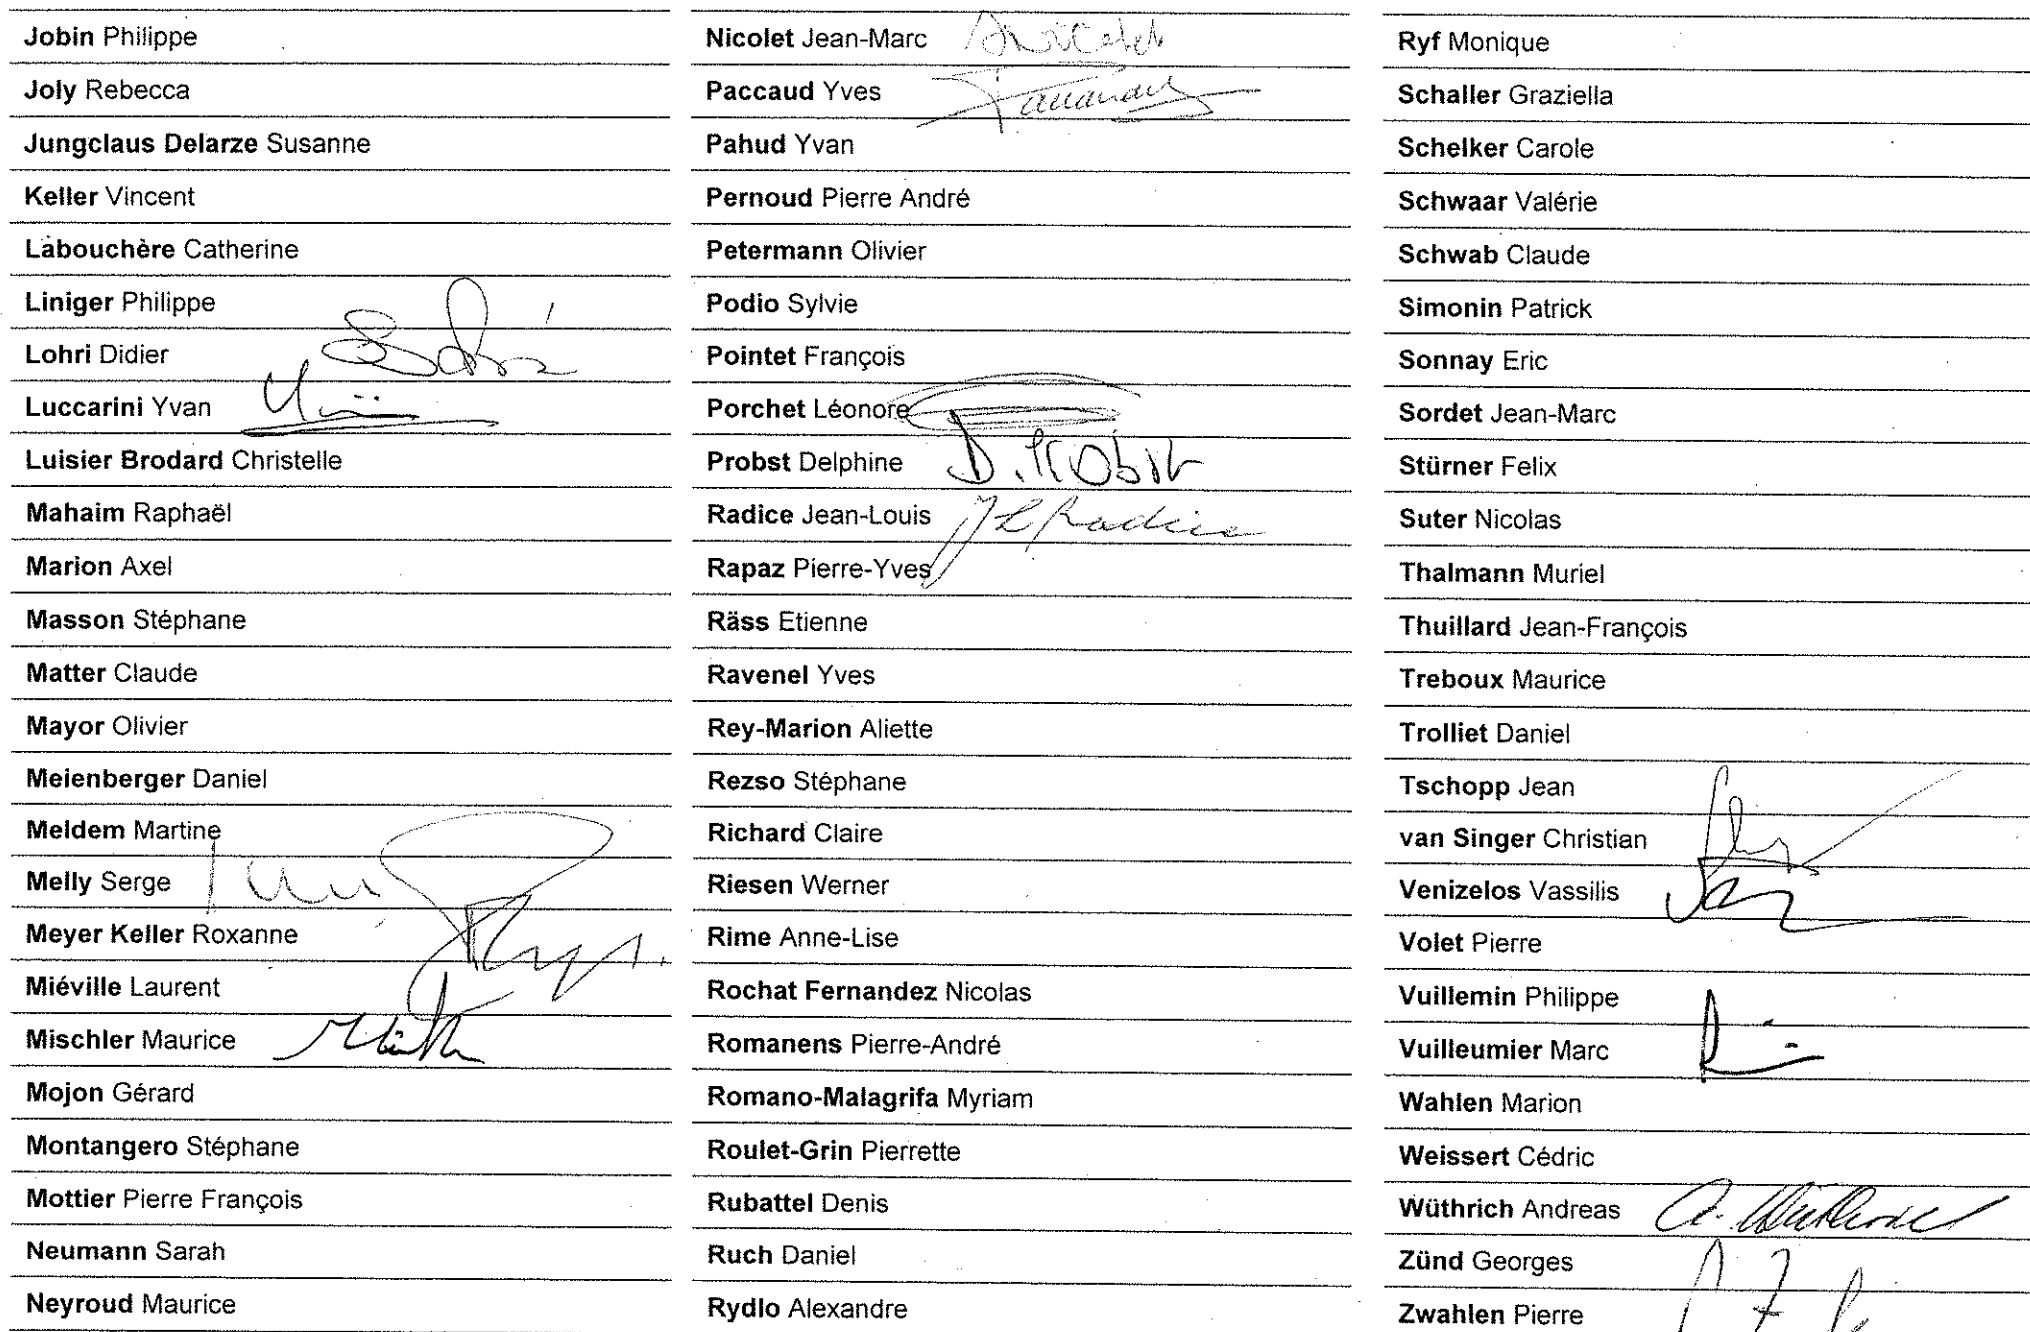 Jobin Philippe
Joly Rebecca
Jungclaus Delarze Susanne
Keller Vincent
Labouchère Catherine
Liniger Philippe
Lohri Didier
Luccarini Yvan
Luisier Brodard Christelle
Mahaim Raphaël
Marion Axel
Masson Stéphane
Matter Claude
Mayor Olivier
Meienberger Daniel
Meldem Martine
Melly Serge
Meyer Keller Roxanne
Miéville Laurent
Mischler Maurice
Mojon Gérard
Montangero Stéphane
Mottier Pierre François
Neumann Sarah
Neyroud Maurice
Nicolet Jean-Marc
Paccaud Yves
Pahud Yvan
Pernoud Pierre André
Petermann Olivier
Podio Sylvie
Pointet François
Porchet Léonore
Probst Delphine D. Probst
Radice Jean-Louis JL Radice
Rapaz Pierre-Yves
Räss Etienne
Ravenel Yves
Rey-Marion Aliette
Rezso Stéphane
Richard Claire
Riesen Werner
Rime Anne-Lise
Rochat Fernandez Nicolas
Romanens Pierre-André
Romano-Malagrifa Myriam
Roulet-Grin Pierrette
Rubattel Denis
Ruch Daniel
Rydlo Alexandre
Ryf Monique
Schaller Graziella
Schelker Carole
Schwaar Valérie
Schwab Claude
Simonin Patrick
Sonnay Eric
Sordet Jean-Marc
Stürner Felix
Suter Nicolas
Thalmann Muriel
Thuillard Jean-François
Treboux Maurice
Trolliet Daniel
Tschopp Jean
van Singer Christian
Venizelos Vassilis
Volet Pierre
Vuillemin Philippe
Vuilleumier Marc
Wahlen Marion
Weissert Cédric
Wüthrich Andreas A. Wüthrich
Zünd Georges
Zwahlen Pierre